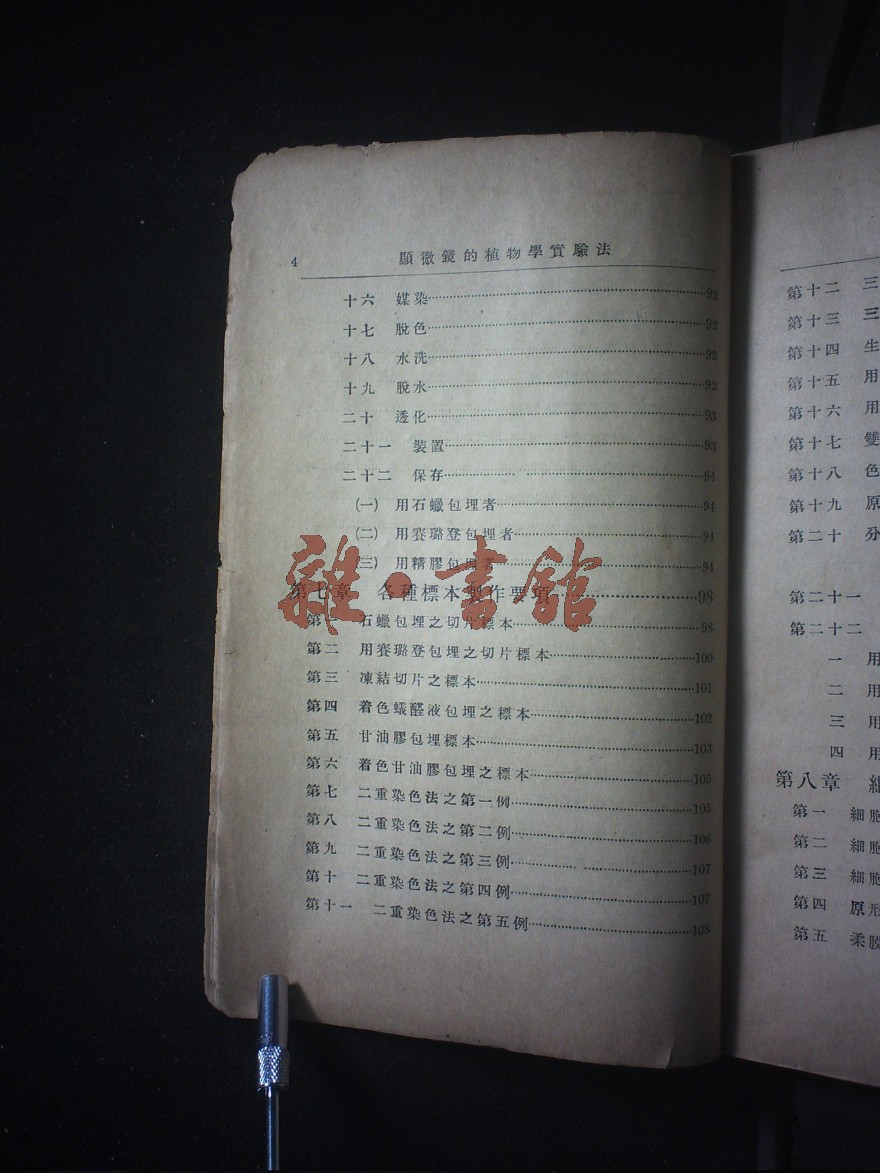 4 顯微鏡的植物學實驗法
十六 媒染……92
十七 脫色……92
十八 水洗……92
十九 脫水……92
二十 透化……93
二十一 裝置……93
二十二 保存……94
(一) 用石蠟包埋者……94
(二) 用賽璐登包埋者……94
(三) 用精膠包埋者……94
第七章 各種標本製作要項……98
第一 石蠟包埋之切片標本……98
第二 用賽璐登包埋之切片標本……100
第三 凍結切片之標本……101
第四 着色蟻醛液包埋之標本……102
第五 甘油膠包埋標本……103
第六 着色甘油膠包埋之標本……105
第七 二重染色法之第一例……105
第八 二重染色法之第二例……106
第九 二重染色法之第三例……107
第十 二重染色法之第四例……107
第十一 二重染色法之第五例……108
雜·書館
第十二 三
第十三 三
第十四 生
第十五 用
第十六 用
第十七 雙
第十八 色
第十九 原
第二十 分
第二十一
第二十二
一 用
二 用
三 用
四 用
第八章
第一 細胞
第二 細胞
第三 細胞
第四 原形
第五 柔膜